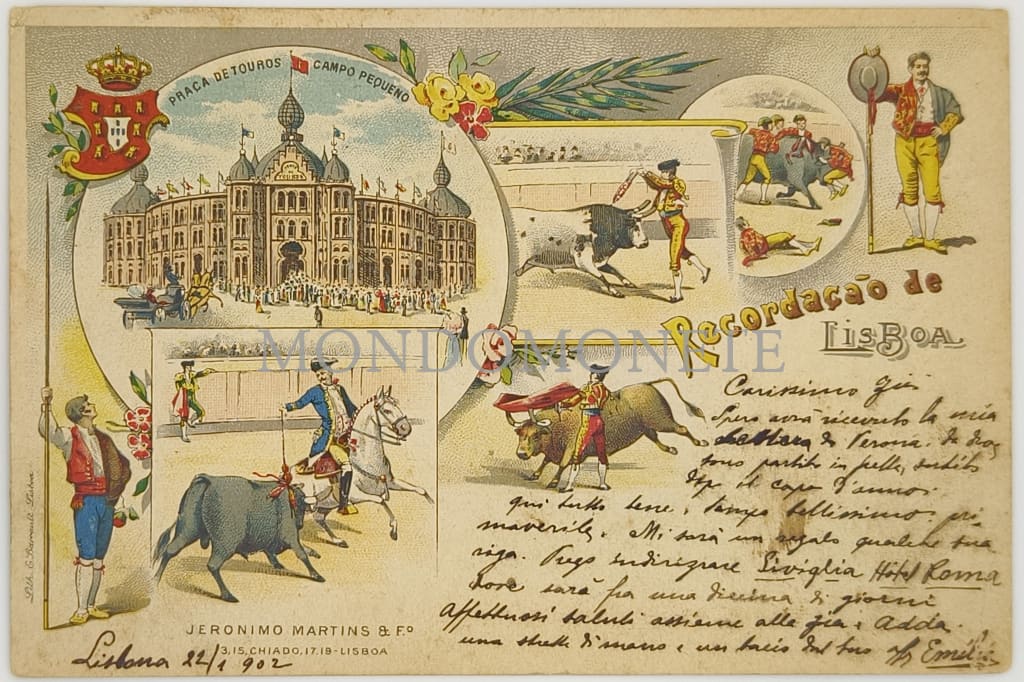 PRAÇA DE TOUROS CAMPO PEQUENO
Recordação de
LISBOA
MONDOMONETE
Carissimo
Spero avrà ricevuto la mia
lettera di Verona. Da
sono partito in subito
il capo d'anno.
qui tutto bene, tempo bellissimo. pri
maverile. Mi sarà un regalo qualche sua
riga. Prego indirizzare Siviglia Hôtel Roma
dove sarà fra una diecina di giorni
Affettuosi saluti assieme alla zia e Adda.
una stretta di mano e un bacio dal suo aff Emilio
JERONIMO MARTINS & Fº
13,15, CHIADO, 17.19 - LISBOA
Lisbona 22/1 902
Lith. Lisboa